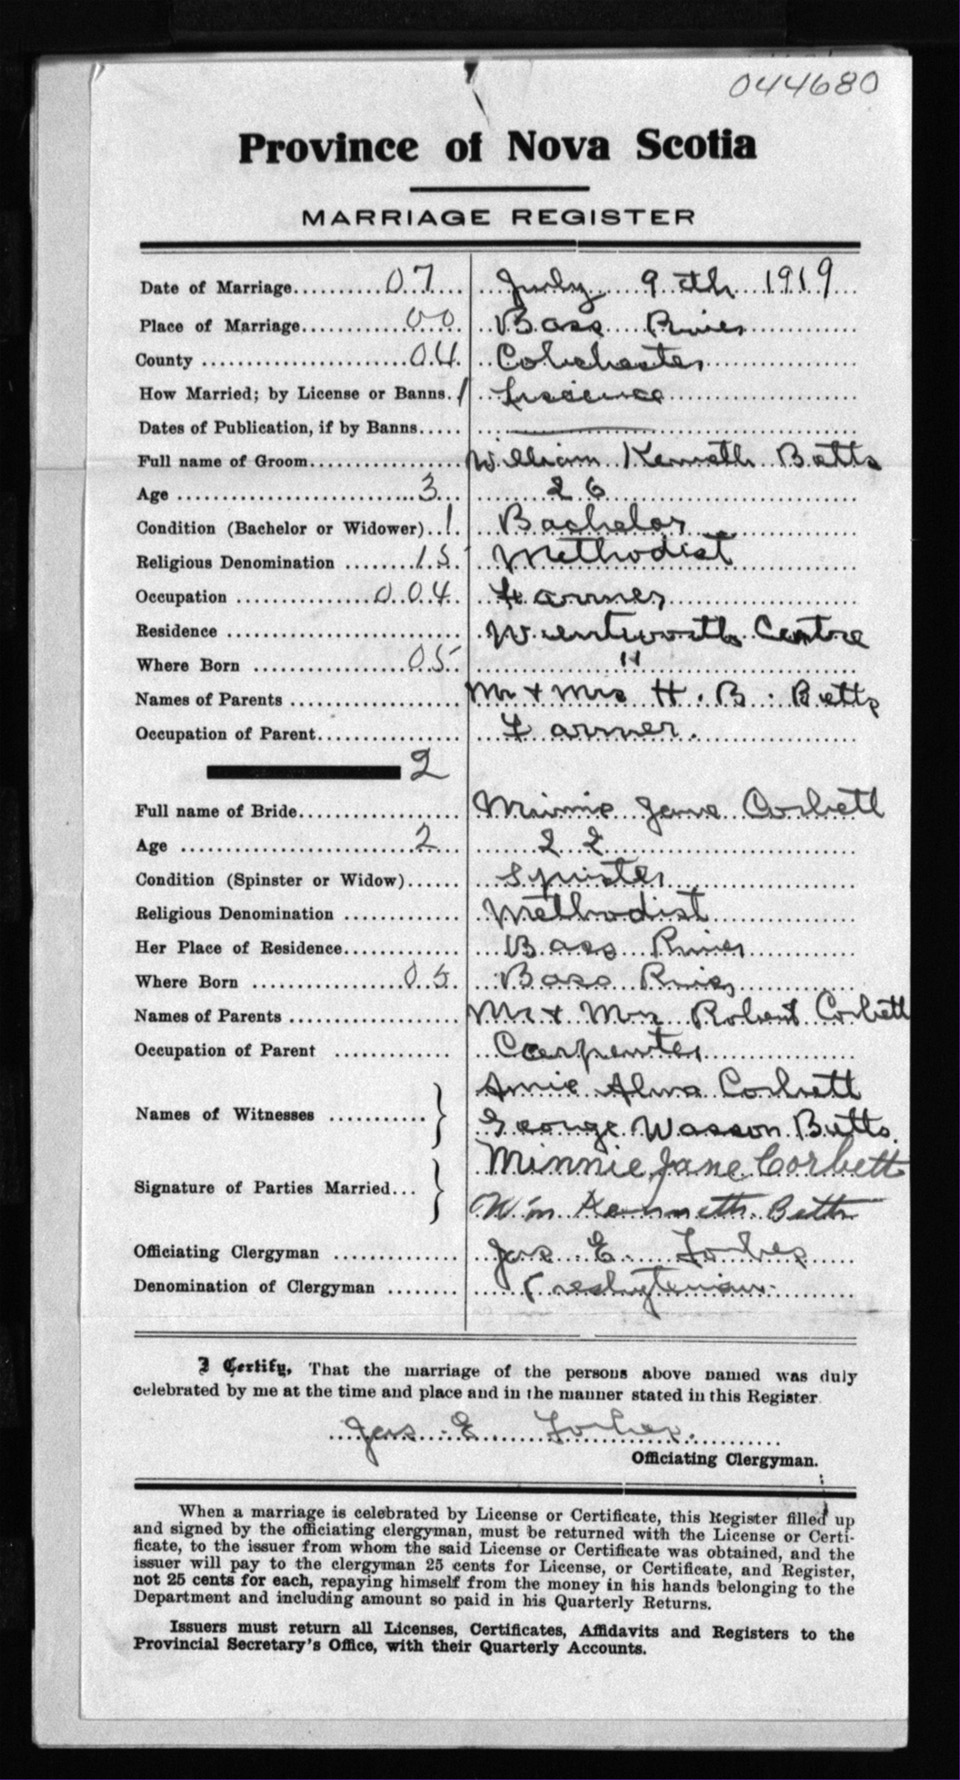 044680
Province of Nova Scotia
MARRIAGE REGISTER
Date of Marriage..........07.... July 9th 1919
Place of Marriage.............00. Bass River
County ......................04. Colchester
How Married; by License or Banns. 1 Liscence
Dates of Publication, if by Banns.....
Full name of Groom................ William Kenneth Betts
Age .........................3... 26
Condition (Bachelor or Widower)..1. Bachelor
Religious Denomination .......15. Methodist
Occupation ...............004. Farmer
Residence ......................... Wentworth Centre
Where Born .................05 "
Names of Parents ................... Mr + Mrs H. B. Betts
Occupation of Parent................ Farmer.
2
Full name of Bride.................. Minnie Jane Corbett
Age .........................2... 22
Condition (Spinster or Widow)...... Spinster
Religious Denomination ............ Methodist
Her Place of Residence............. Bass River
Where Born .................05. Bass River
Names of Parents ................... Mr + Mrs Robert Corbett
Occupation of Parent ............ Carpenter
Amie Alma Corbett
Names of Witnesses ...........
George Wasson Betts.
Minnie Jane Corbett
Signature of Parties Married...
Wm Kenneth Betts
Officiating Clergyman ............. Jas E. Forbes
Denomination of Clergyman ........ Presbyterian
I Certify, That the marriage of the persons above named was duly
celebrated by me at the time and place and in the manner stated in this Register
Jas. E. Forbes.
Officiating Clergyman.
When a marriage is celebrated by License or Certificate, this Register filled up
and signed by the officiating clergyman, must be returned with the License or Certi-
ficate, to the issuer from whom the said License or Certificate was obtained, and the
issuer will pay to the clergyman 25 cents for License, or Certificate, and Register,
not 25 cents for each, repaying himself from the money in his hands belonging to the
Department and including amount so paid in his Quarterly Returns.
Issuers must return all Licenses, Certificates, Affidavits and Registers to the
Provincial Secretary's Office, with their Quarterly Accounts.